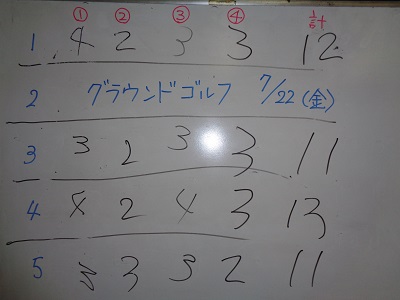 ① ② ③ ④ 計
1 4 2 3 3 12
2 グラウンドゴルフ 7/22(金)
3 3 2 3 3 11
4 4 2 4 3 13
5 3 3 3 2 11